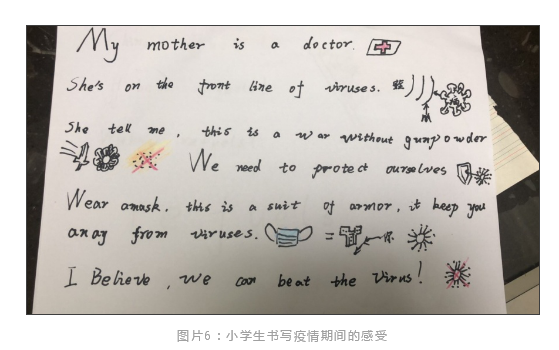 My mother is a doctor.
She's on the front line of viruses.
She tell me, this is a war without gunpowder
We need to protect ourselves
Wear amask. this is a suit of armor, it keep you
away from viruses. =
I Believe, we can beat the Virus!
图片6：小学生书写疫情期间的感受